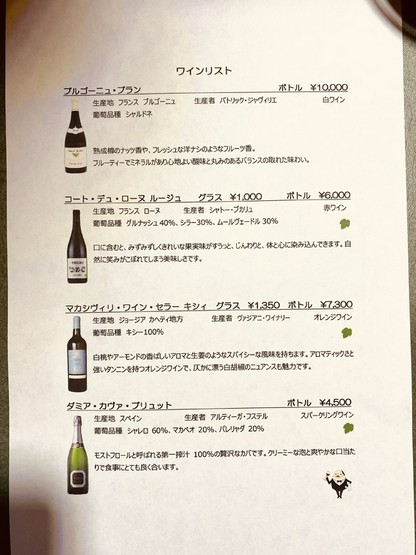 ワインリスト
ブルゴーニュ・ブラン ボトル ¥10,000
生産地 フランス ブルゴーニュ 生産者 パトリック・ジャヴィリエ 白ワイン
葡萄品種 シャルドネ
熟成樽のナッツ香や、フレッシュな洋ナシのようなフルーツ香。
フルーティーでミネラルがあり心地よい酸味と丸みのあるバランスの取れた味わい。
コート・デュ・ローヌ ルージュ グラス ¥1,000 ボトル ¥6,000
生産地 フランス ローヌ 生産者 シャトー・ボカリュ 赤ワイン
葡萄品種 グルナッシュ 40%、シラー30%、ムールヴェードル 30%
口に含むと、みずみずしくきれいな果実味がすうっと、じんわりと、体と心に染み込んできます。自
然に笑みがこぼれてしまう美味しさです。
マカシヴィリ・ワイン・セラー キシィ グラス ¥1,350 ボトル ¥7,300
生産地 ジョージア カヘティ地方 生産者 ヴァジアニ・ワイナリー オレンジワイン
葡萄品種 キシー100%
白桃やアーモンドの香ばしいアロマと生姜のようなスパイシーな風味を持ちます。アロマティックさと
強いタンニンを持つオレンジワインで、仄かに漂う白胡椒のニュアンスも魅力です。
ダミア・カヴァ・ブリュット ボトル ¥4,500
生産地 スペイン 生産者 アルティーガ・フステル スパークリングワイン
葡萄品種 シャレロ 60%、マカベオ 20%、パレリャダ 20%
モストフロールと呼ばれる第一搾汁 100%の贅沢なカバです。クリーミーな泡と爽やかな口当た
りで食事にとても良く合います。